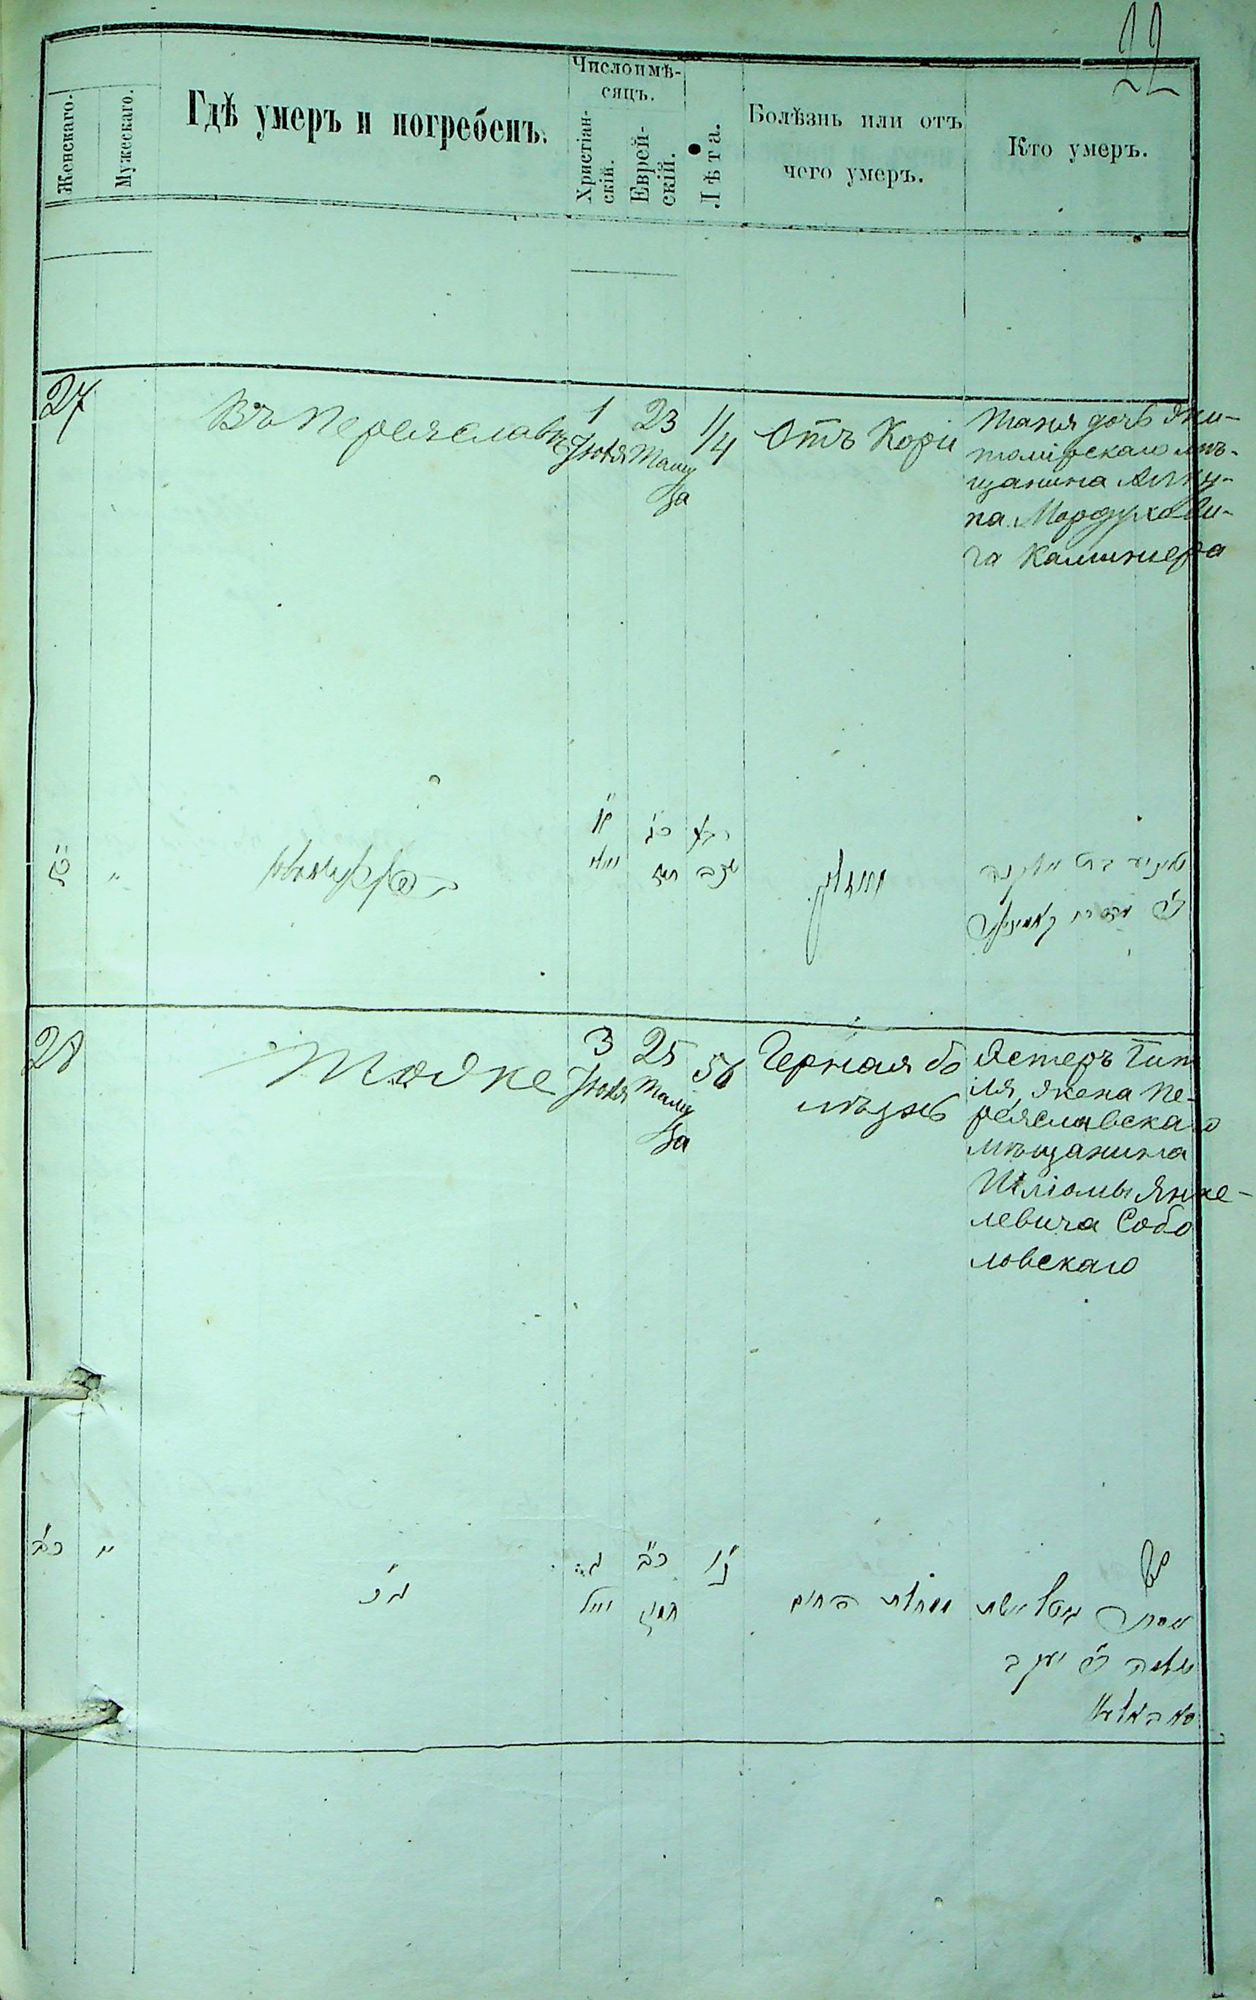 22
Женскаго.
Мужескаго.
Гдѣ умеръ и погребенъ.
Число и мѣ-
сяцъ.
Христіан-
скій.
Еврей-
скій.
Лѣта.
Болѣзнь или отъ
чего умеръ.
Кто умеръ.
27
Въ Переяславѣ
1
Іюля
23
Таму
за
1/4
Отъ Кори
Таня дочь Жи-
томірскаго мѣ-
щанина Янку-
па Мордухови-
ча Каминера
כ״ז
״
כ״ג
תמוז
28
Тоже
3
Іюля
25
Таму
за
56
Черная бо
лѣзнь
Эстеръ Гит
ля, жена Пе-
реяславскаго
мѣщанина
Шліомы Янке-
левича Собо
ловскаго
כ״ח
״
כנ״ל
ג׳
יולי
כ״ה
תמוז
נ״ו
אסתר גיטל אשת
שלמה ב״ר יעקב
סאבאלאווסקי